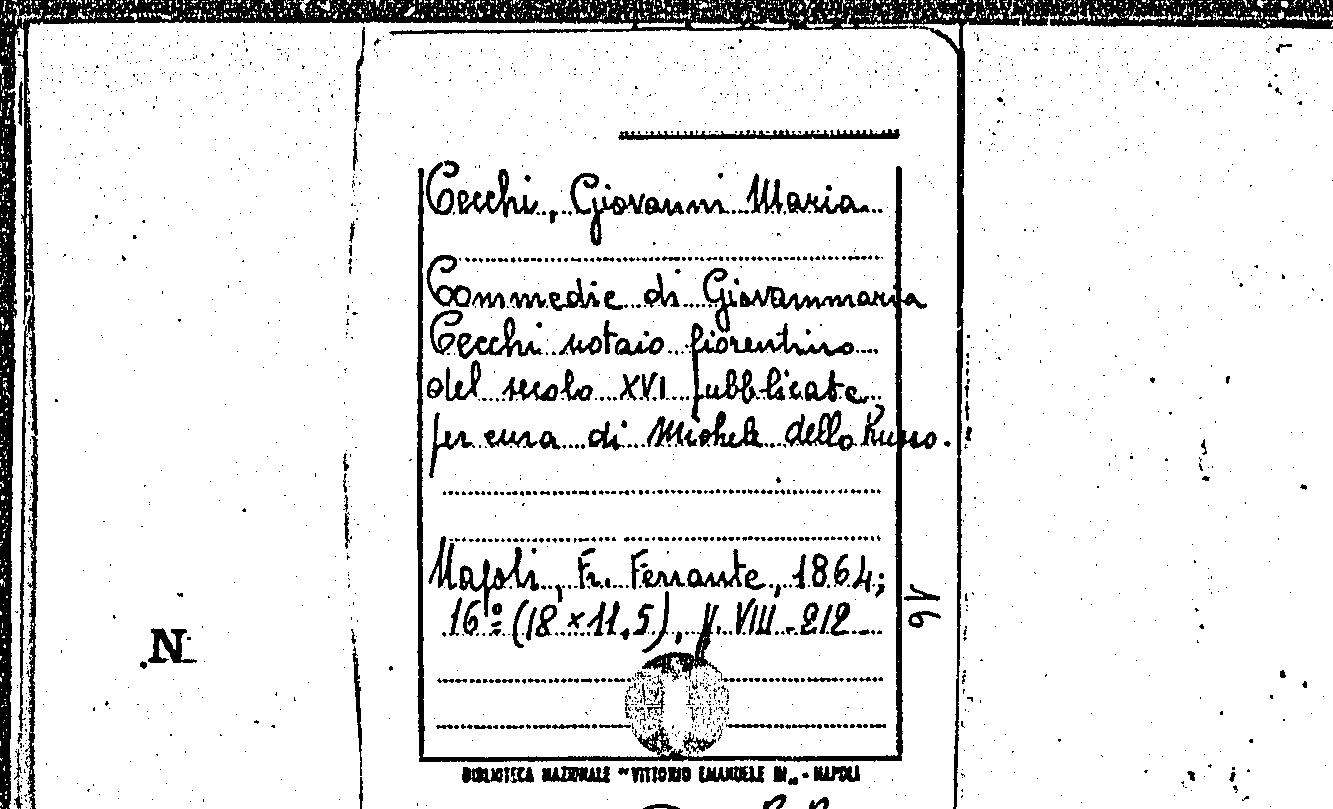 Cecchi, Giovanni Maria
Commedie di Giovammaria
Cecchi notaio fiorentino
del secolo XVI pubblicate
per cura di Michele dello Russo.
Napoli, Fr. Ferrante, 1864;
16º (18 × 11,5), pp. VIII-212
16
N
BIBLIOTECA NAZIONALE "VITTORIO EMANUELE III" - NAPOLI